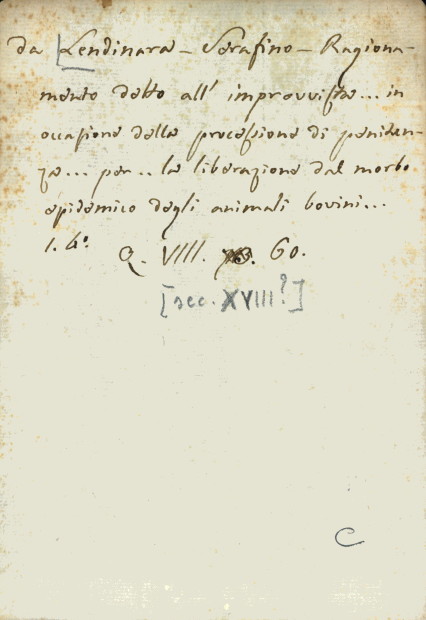 da [Lendinara - Serafino - Ragiona-
mento detto all' improvvista... in
occasione della processione di peniten-
za... per.. la liberazione dal morbo
epidemico degli animali bovini...
1. 4º.
Q. VIII. 60.
[sec. XVIII?]
C